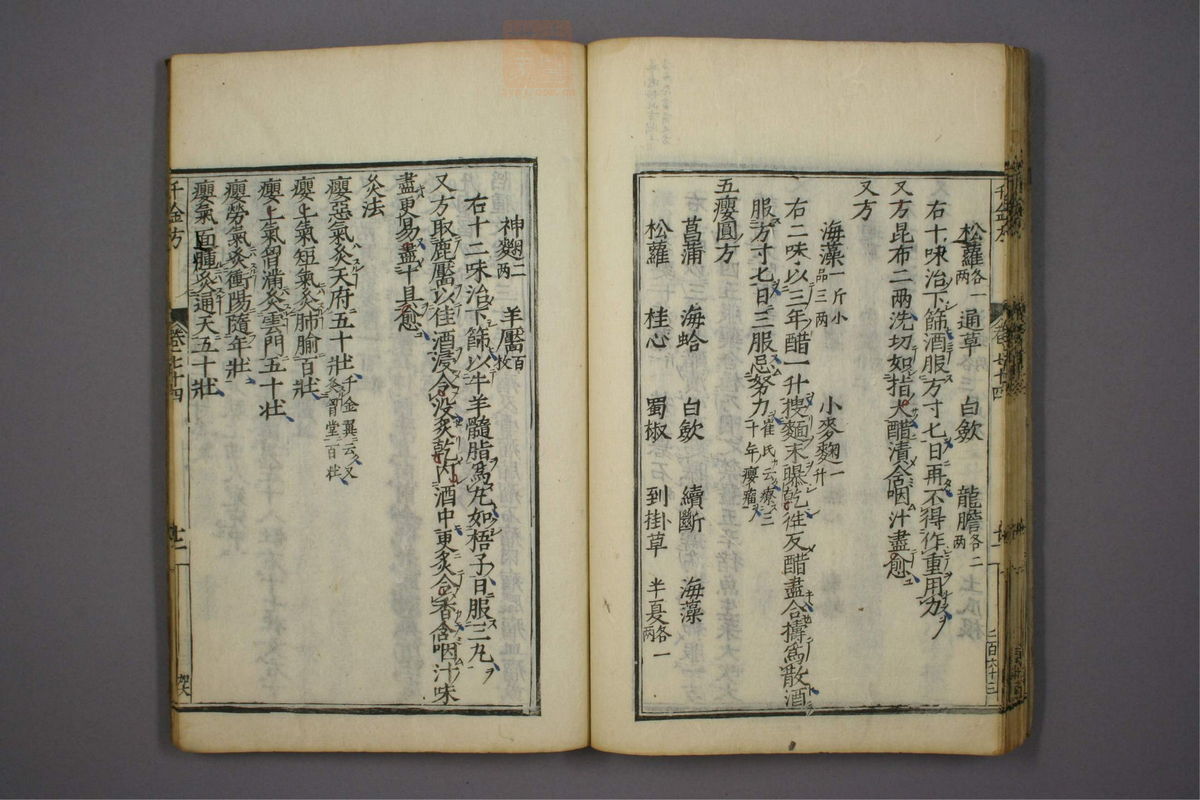 松蘿各一兩　通草　白歛　龍膽各二兩
右十味治下篩酒服方寸七日再不得作重用力
又方昆布二兩洗切如指大醋漬含咽汁盡愈
又方
海藻一斤小品三兩　小麥麴一升
右二味以三年醋一升搜麵末曝乾徃反醋盡合擣爲散酒
服方寸七日三服忌努力崔氏云療三十年癭瘤
五癭圓方
菖蒲　海蛤　白歛　續斷　海藻
松蘿　桂心　蜀椒　到掛草　半夏各一兩
千金方　卷七十四
二百六十三
神麴二兩　羊靨百枚
右十二味治下篩以牛羊髓脂爲丸如梧子日服三丸
又方取鹿靨以佳酒浸令没炙乾内酒中更炙令香含咽汁味
盡更易盡十具愈
灸法
癭惡氣灸天府五十壯千金翼云又灸胷堂百壯
癭上氣短氣灸肺腧百壯
癭上氣胷滿灸雲門五十壯
癭勞氣灸衝陽隨年壯
癭氣面腫灸通天五十壯
千金方　卷七十四　十一